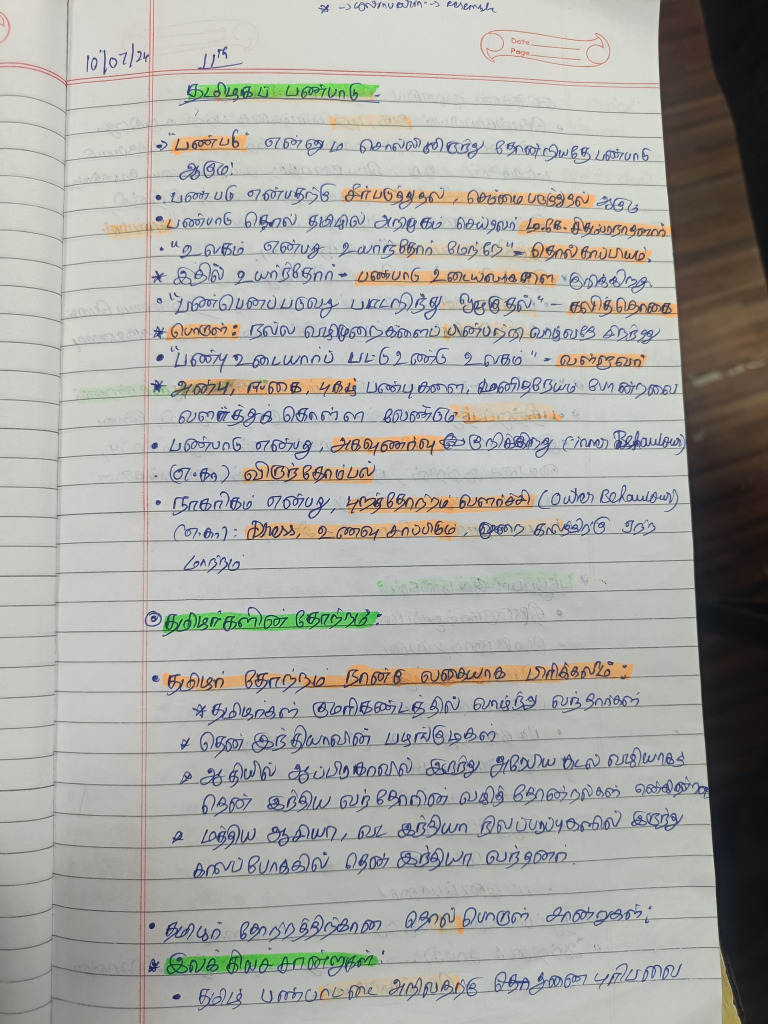 Date
Page
10/07/24 11th
தமிழகப் பண்பாடு -
→ "பண்படு" என்னும் சொல்லிலிருந்து தோன்றியதே பண்பாடு
ஆகும்.
• பண்படு என்பதற்கு சீர்படுத்துதல், செம்மைபடுத்துதல் ஆகும்
• பண்பாடு தொல் தமிழில் அறிமுகம் செய்தவர் டி.கே.சிதம்பரநாதனார்
• "உலகம் என்பது உயர்ந்தோர் மேற்றே" - தொல்காப்பியம்.
* இதில் உயர்ந்தோர் - பண்பாடு உடையவர்களை குறிக்கிறது.
• "பண்பெனப்படுவது பாடறிந்து ஒழுகுதல்" - கலித்தொகை
* பொருள்: நல்ல வழிமுறைகளைப் பின்பற்றி வாழ்வதே சிறந்து
• "பண்பு உடையார்ப் பட்டுஉண்டு உலகம்" - வள்ளுவர்
* அன்பு, ஈகை, புகழ் பண்புகளை, மனிதநேயம் போன்றவை
வளர்த்துக் கொள்ள வேண்டும்
• பண்பாடு என்பது, அகவுணர்வு குறிக்கிறது (inner Behaviour)
(எ.கா) விருந்தோம்பல்
• நாகரிகம் என்பது, புறத்தோற்றம் வளர்ச்சி (Outer Behaviour)
(எ.கா): Dress, உணவு சாப்பிடும், முறை காலத்திற்கு ஏற்ற
மாற்றம்
தமிழர்களின் தோற்றம்:
• தமிழர் தோற்றம் நான்கு வகையாக பிரிக்கலாம்:
* தமிழர்கள் குமரிகண்டத்தில் வாழ்ந்து வந்தார்கள்
* தென் இந்தியாவின் பழங்குடிகள்
* ஆதியில் ஆப்பிரிகாவில் இருந்து அரேபிய கடல் வழியாகத்
தென் இந்திய வந்தோரின் வழித் தோன்றல்கள் என்கின்றன
* மத்திய ஆசியா, வட இந்தியா நிலப்பரப்புகளில் இருந்து
காலப்போக்கில் தென் இந்தியா வந்தனர்.
• தமிழர் தோற்றத்திற்கான தொல் பொருள் சான்றுகள்:
* இலக்கியச் சான்றுகள்:
• தமிழ் பண்பாட்டை அறிவதற்கு துணை புரிபவை